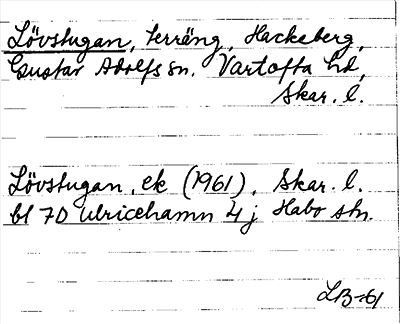 Lövstugan, terräng, Hackeberg,
Gustav Adolfs sn. Vartofta hd,
Skar. l.
Lövstugan, ek (1961), Skar. l.
bl 7D Ulricehamn 4j Habo stn.
LB-61